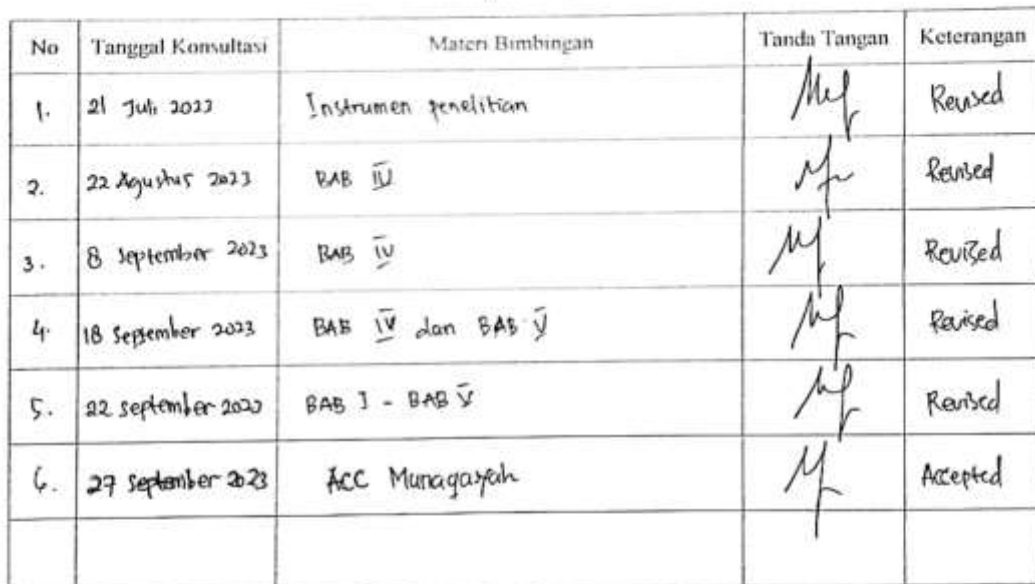 No Tanggal Konsultasi Materi Bimbingan Tanda Tangan Keterangan
1. 21 Juli 2023 Instrumen penelitian Revised
2. 22 Agustus 2023 BAB IV Revised
3. 8 September 2023 BAB IV Revised
4. 18 September 2023 BAB IV dan BAB V Revised
5. 22 september 2023 BAB I - BAB V Revised
6. 27 September 2023 ACC Munaqasyah Accepted